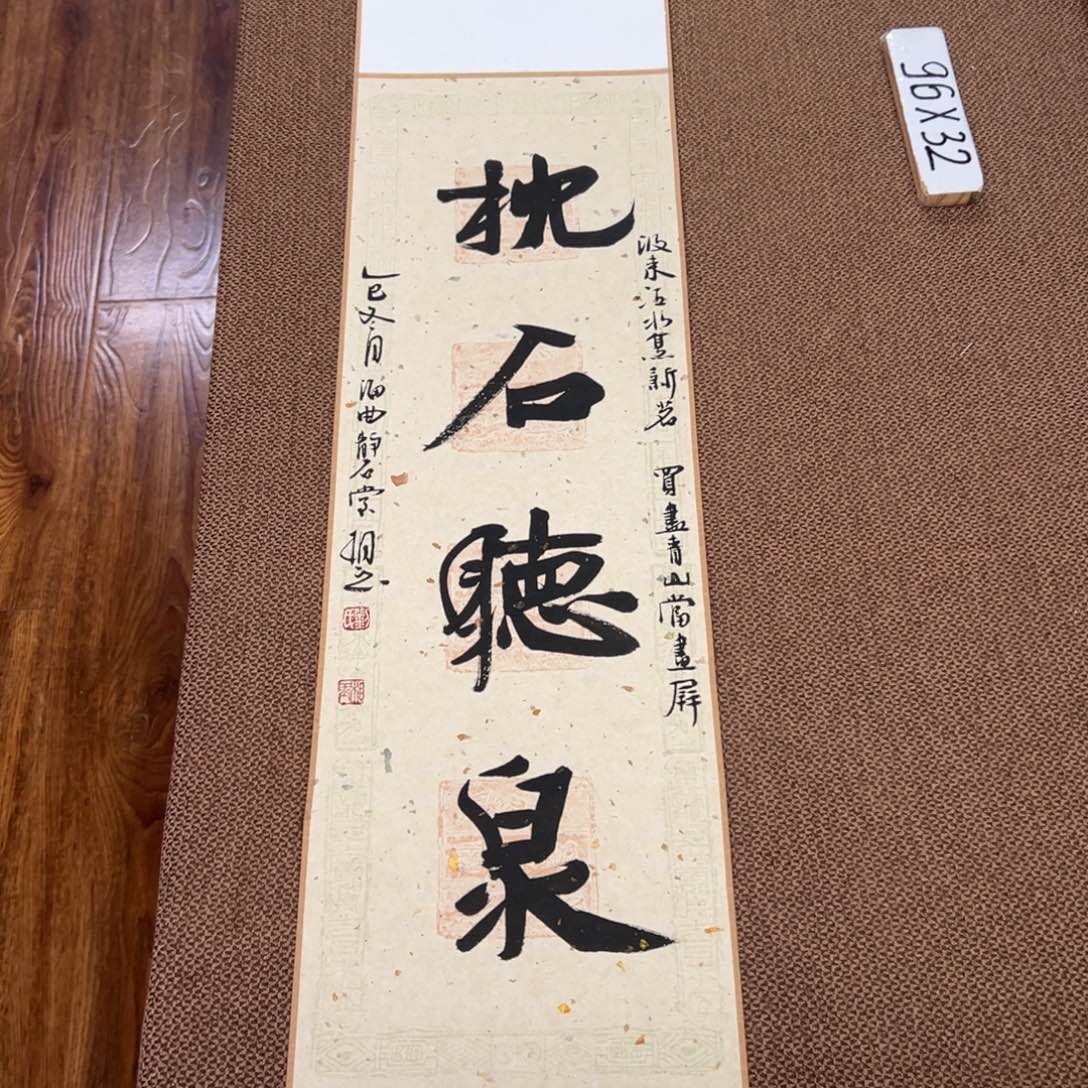 汲来江水煮新茗 買盡青山當畫屏
枕石聽泉
乙巳月海曲靜石堂
96X32